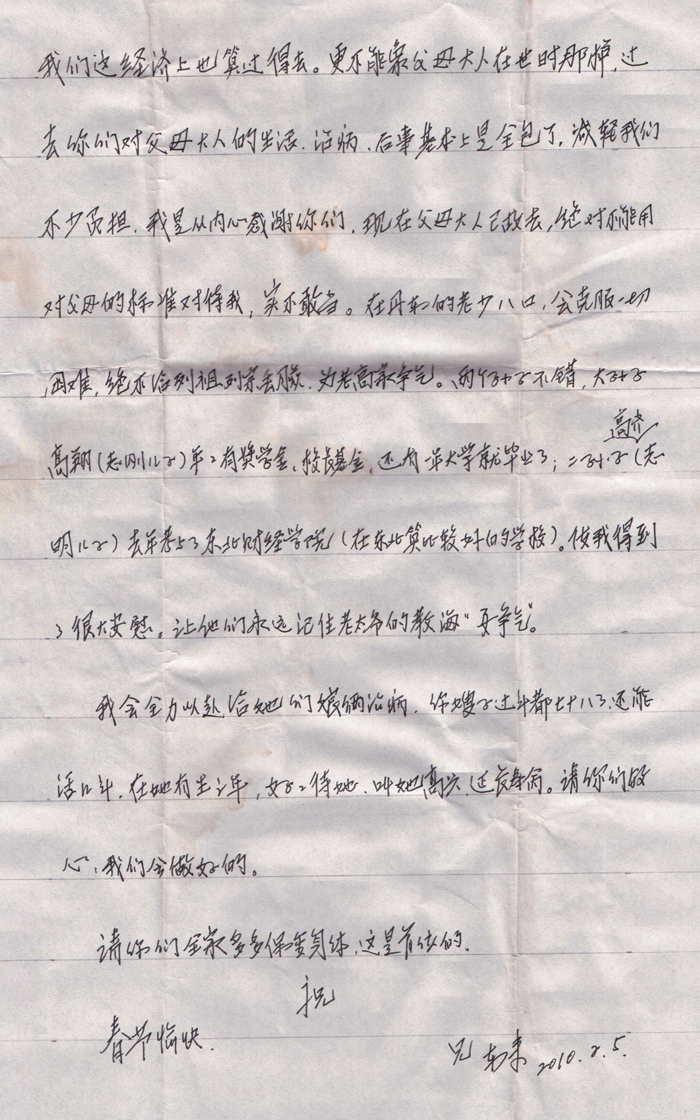 我们这经济上也算过得去。更不能象父母大人在世时那样,过
去你们对父母大人的生活、治病、后事基本上是全包了,减轻我们
不少负担,我是从内心感谢你们,现在父母大人已故去,绝对不能用
对父母的标准对待我,实不敢当。在丹东的老少八口,会克服一切
困难,绝不给列祖列宗丢脸,为老高家争气。两个孙子不错,大孙子
高翔(志刚儿子)年年有奖学金、 还有一年大学就毕业了;二孙子(志
高齐
明儿子)去年考上了东北财经学院(在东北算比较好的学校)。使我得到
了很大安慰。让他们永远记住老太爷的教诲“要争气”。
我会全力以赴给她们娘俩治病,你嫂子过年都七十八了,还能
活几年,在她有生之年,好好待她,叫她高兴,延年 。请你们放
心,我们会做好的。
请你们全家多多保重身体,这是首位的。
祝
春节愉快。
兄 2010.2.5.